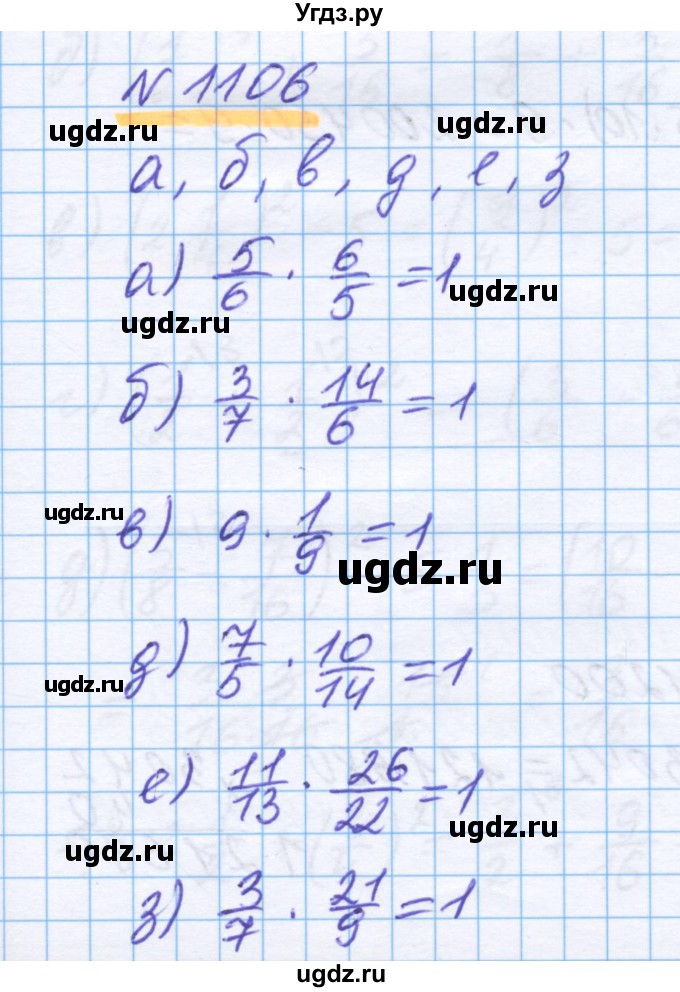 Угдз.ру
N 1106
ugdz.ru ugdz.ru
а, б, в, д, е, з
а) 5/6 · 6/5 = 1
ugdz.ru
ugdz.ru
б) 3/7 · 14/6 = 1
ugdz.ru
в) 9 · 1/9 = 1
ugdz.ru
д) 7/5 · 10/14 = 1
ugdz.ru
е) 11/13 · 26/22 = 1
ugdz.ru
ugdz.ru
з) 3/7 · 21/9 = 1
ugdz.ru